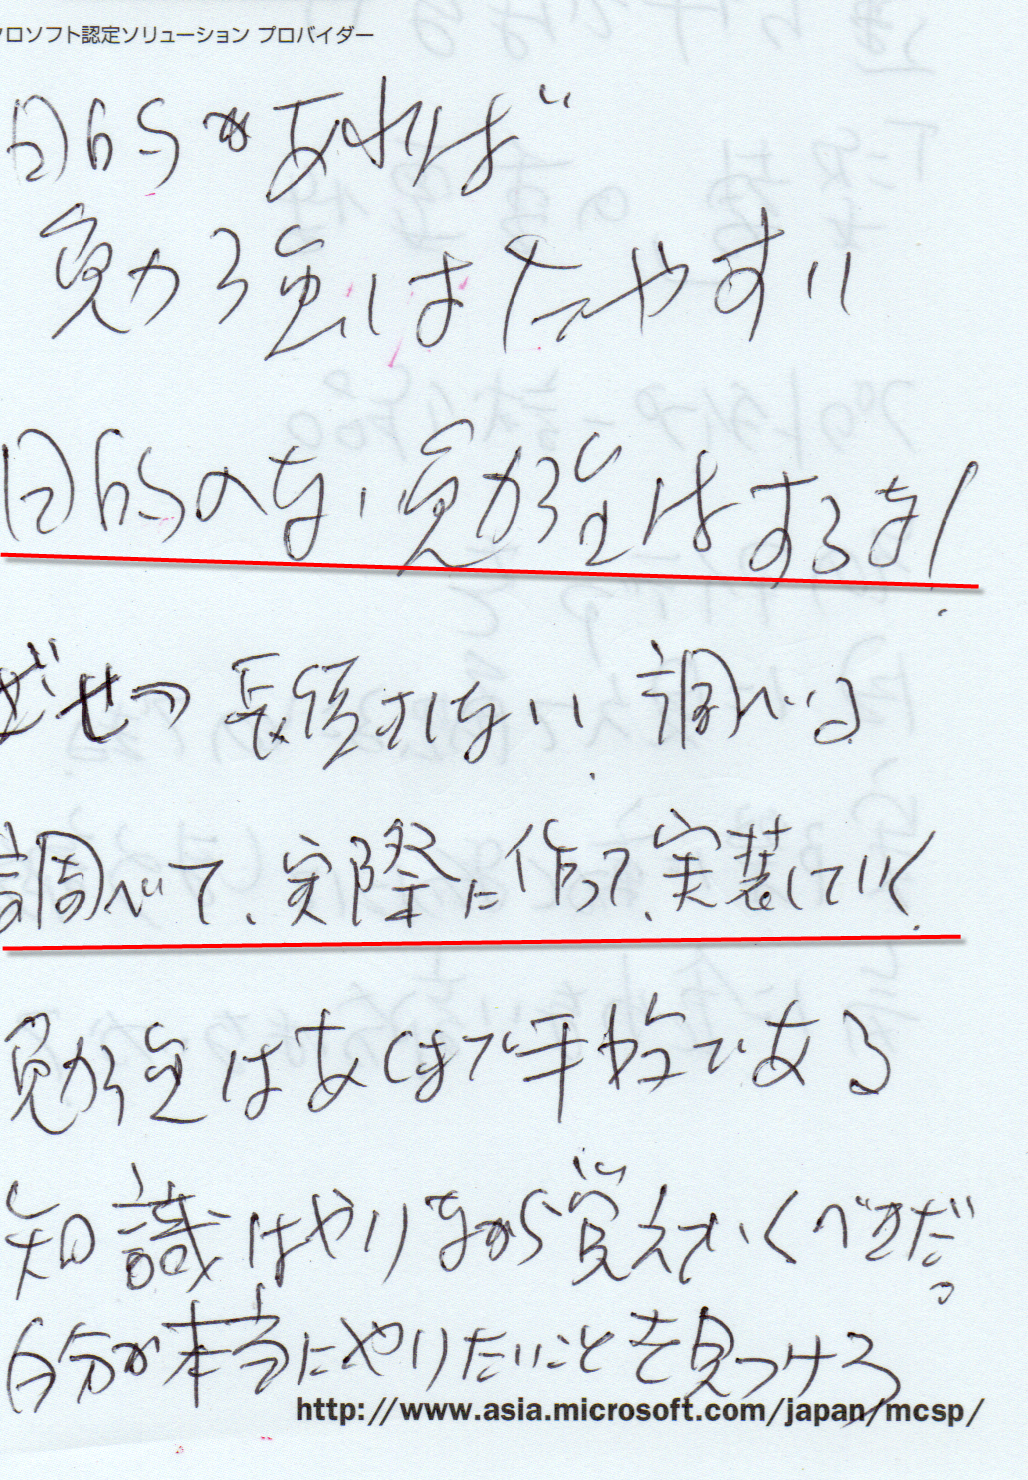 クロソフト認定ソリューション プロバイダー
目的があれば
勉強はたやすい
目的のない勉強はするな!
ぜせつ 長領さはない、調べる
調べて、実際に作って、実装していく
勉強はあくまで手段である
知識はやりながら覚えていくべきだ。
自分が本当にやりたいことを見つけろ
http://www.asia.microsoft.com/japan/mcsp/